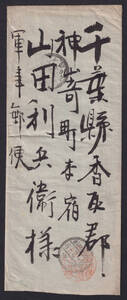 千葉縣香取郡
神崎町本宿
山田利兵衛様
軍事郵便